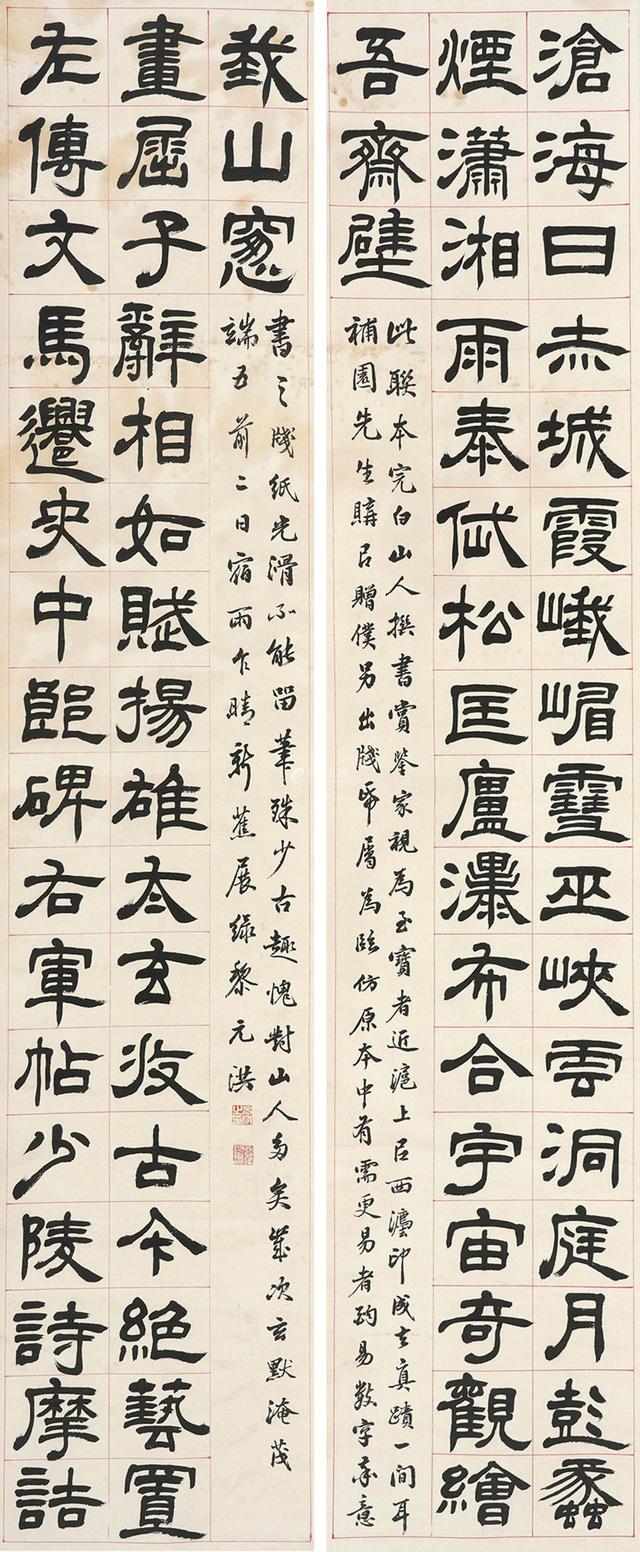 滄海日赤城霞峨嵋雪巫峽雲洞庭月彭蠡
煙瀟湘雨泰岱松匡廬瀑布合宇宙奇觀繪
吾齋壁
此聯本完白山人撰書賞鑒家視為至寶者近滬上㠯西灋印成去真蹟一間耳
補園先生購㠯贈僕另出牋帋屬為臨仿原本中有需更易者酌易數字意
左傳文馬遷史中郎碑右軍帖少陵詩摩詰
畫屈子辭相如賦揚雄太玄收古今絕藝置
我山窗
書之牋紙光滑不能留筆殊少古趣愧對山人多矣歲次玄默淹茂
端五前二日宿雨乍晴新蕉展綠黎元洪